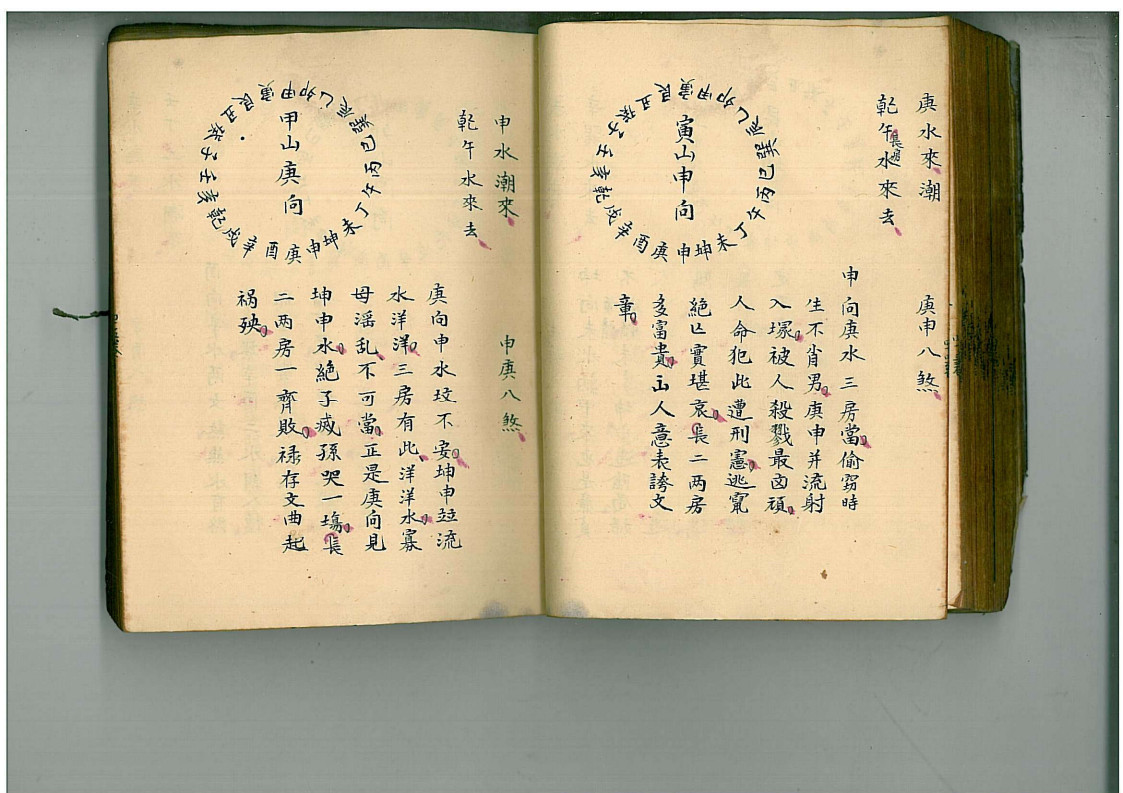 庚水來潮
乾午水來去
庚申八煞
寅山申向
巽巳丙午丁未坤申庚酉辛戌乾亥壬子癸丑艮寅甲卯乙辰
申向庚水三房當偷窃時
生不肖男庚申并流射
入塚被人殺戮最凶頑
人命犯此遭刑憲逃竄
絕亡實堪哀長二两房
多富貴而人意表誇文
章
申水潮來
乾午水來去
申庚八煞
甲山庚向
巽巳丙午丁未坤申庚酉辛戌乾亥壬子癸丑艮寅甲卯乙辰
庚向申水坟不安坤申竝流
水洋洋三房有此洋洋水寡
母滛乱不可當正是庚向見
坤申水絕子滅孫哭一塲長
二两房一齊敗禄存文曲起
祸殃